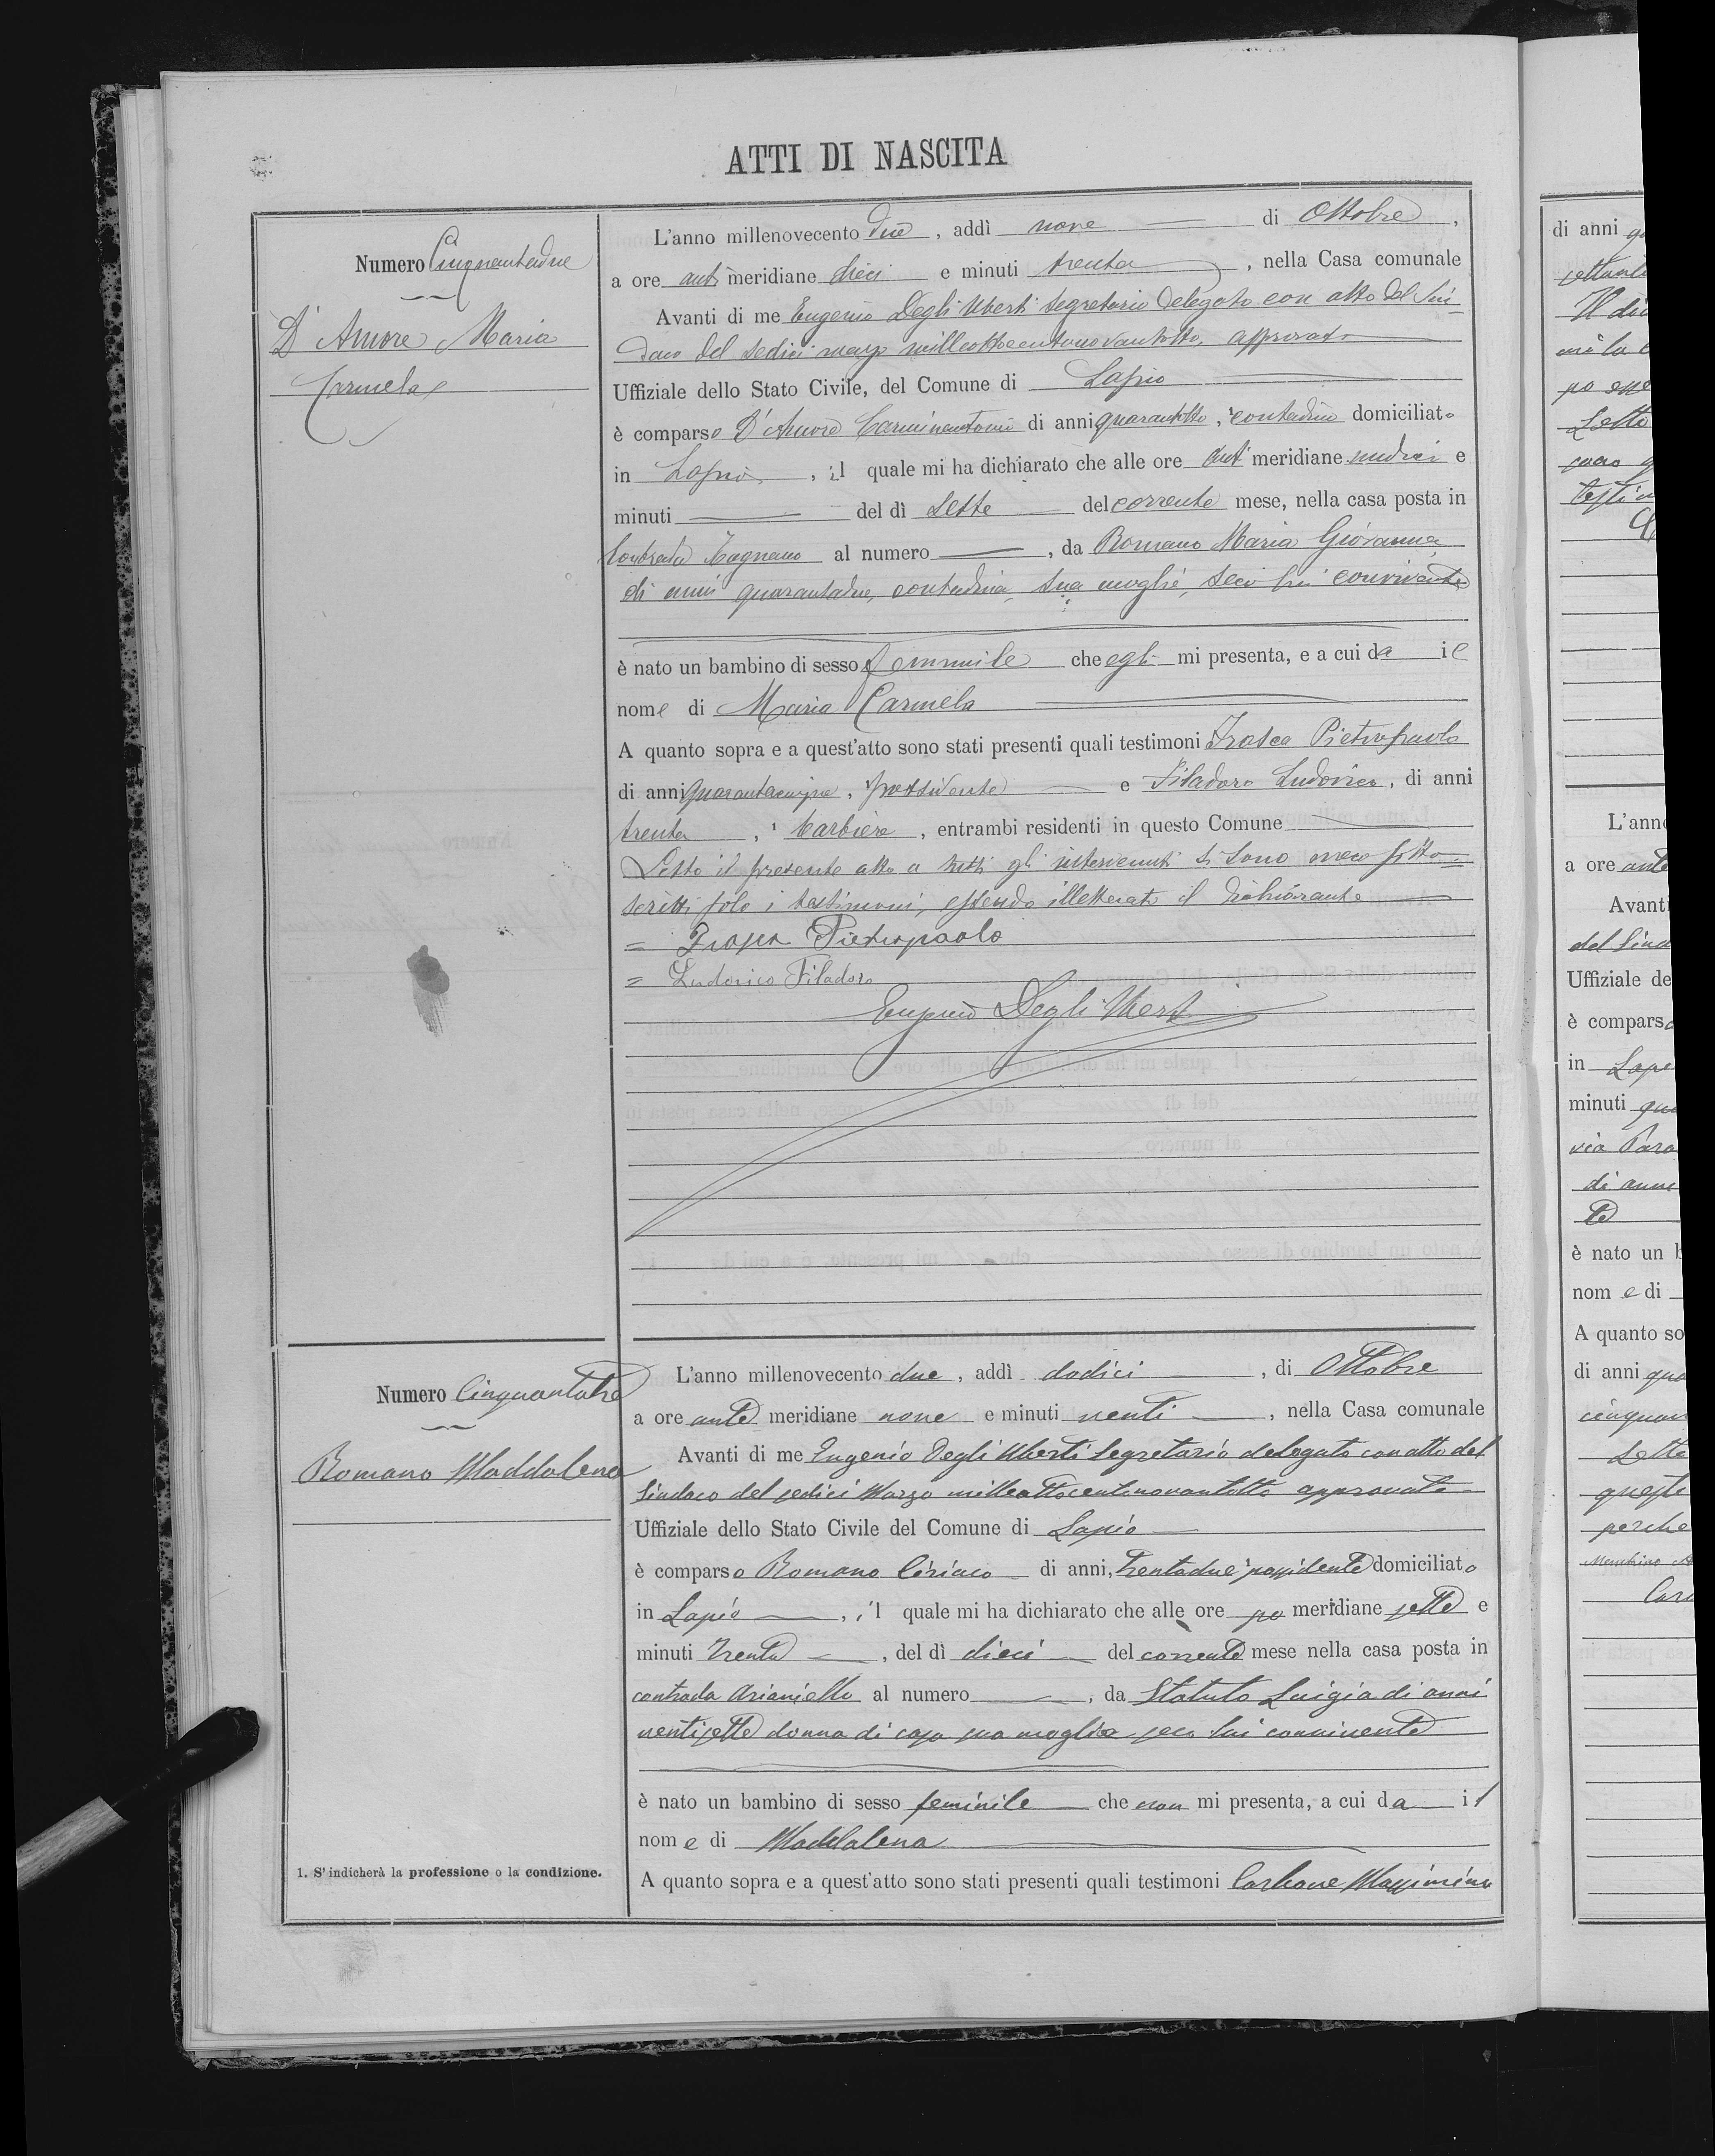 ATTI DI NASCITA
Numero Cinquantadue
D'Amore Maria
Carmela
L'anno millenovecento due, addì nove di Ottobre,
a ore anti meridiane dieci e minuti trenta, nella Casa comunale
Avanti di me Eugenio Degli Uberti Segretario delegato con atto del Sin=
daco del sedici marzo milleottocentonovantotto, approvato
Uffiziale dello Stato Civile, del Comune di Lapio
è comparso D'Amore Carminantonio di anni quarantotto, 1 contadino domiciliato
in Lapio, il quale mi ha dichiarato che alle ore anti meridiane undici e
minuti del dì sette del corrente mese, nella casa posta in
Contrada al numero, da Romano Maria Giovanna
di anni quarantadue, contadina, sua moglie, seco lui convivente
è nato un bambino di sesso femminile che egli mi presenta, e a cui da il
nome di Maria Carmela
A quanto sopra e a quest'atto sono stati presenti quali testimoni Pietropaolo
di anni quarantacinque, 1 possidente e Filadoro Ludovico, di anni
trenta, 1 barbiere, entrambi residenti in questo Comune
Letto il presente atto a tutti gl'intervenuti si sono meco sotto=
scritti solo i testimoni, essendo illetterato il dichiarante
= Pietropaolo
= Ludovico Filadoro
Eugenio Degli Uberti
Numero Cinquantatre
Romano Maddalena
L'anno millenovecento due, addì dodici, di Ottobre
a ore ante meridiane nove e minuti venti, nella Casa comunale
Avanti di me Eugenio Degli Uberti Segretario delegato con atto del
Sindaco del sedici Marzo milleottocentonovantotto approvato
Uffiziale dello Stato Civile del Comune di Lapio
è comparso Romano Ciriaco di anni, trentadue 1 possidente domiciliato
in Lapio, il quale mi ha dichiarato che alle ore po meridiane sette e
minuti trenta, del dì dieci del corrente mese nella casa posta in
contrada Arianiello al numero, da Statuto Luigia di anni
ventisette donna di casa sua moglie seco lui convivente
è nato un bambino di sesso feminile che non mi presenta, a cui da il
nome di Maddalena
1. S'indicherà la professione o la condizione.
A quanto sopra e a quest'atto sono stati presenti quali testimoni Carbone Massimino
di anni
Il
Letto
L'anno
a ore ante
Avanti
del Sind
Uffiziale de
è comparso
in Lapio
minuti
via
di anni
te
è nato un b
nome di
A quanto so
di anni
Letto
perche